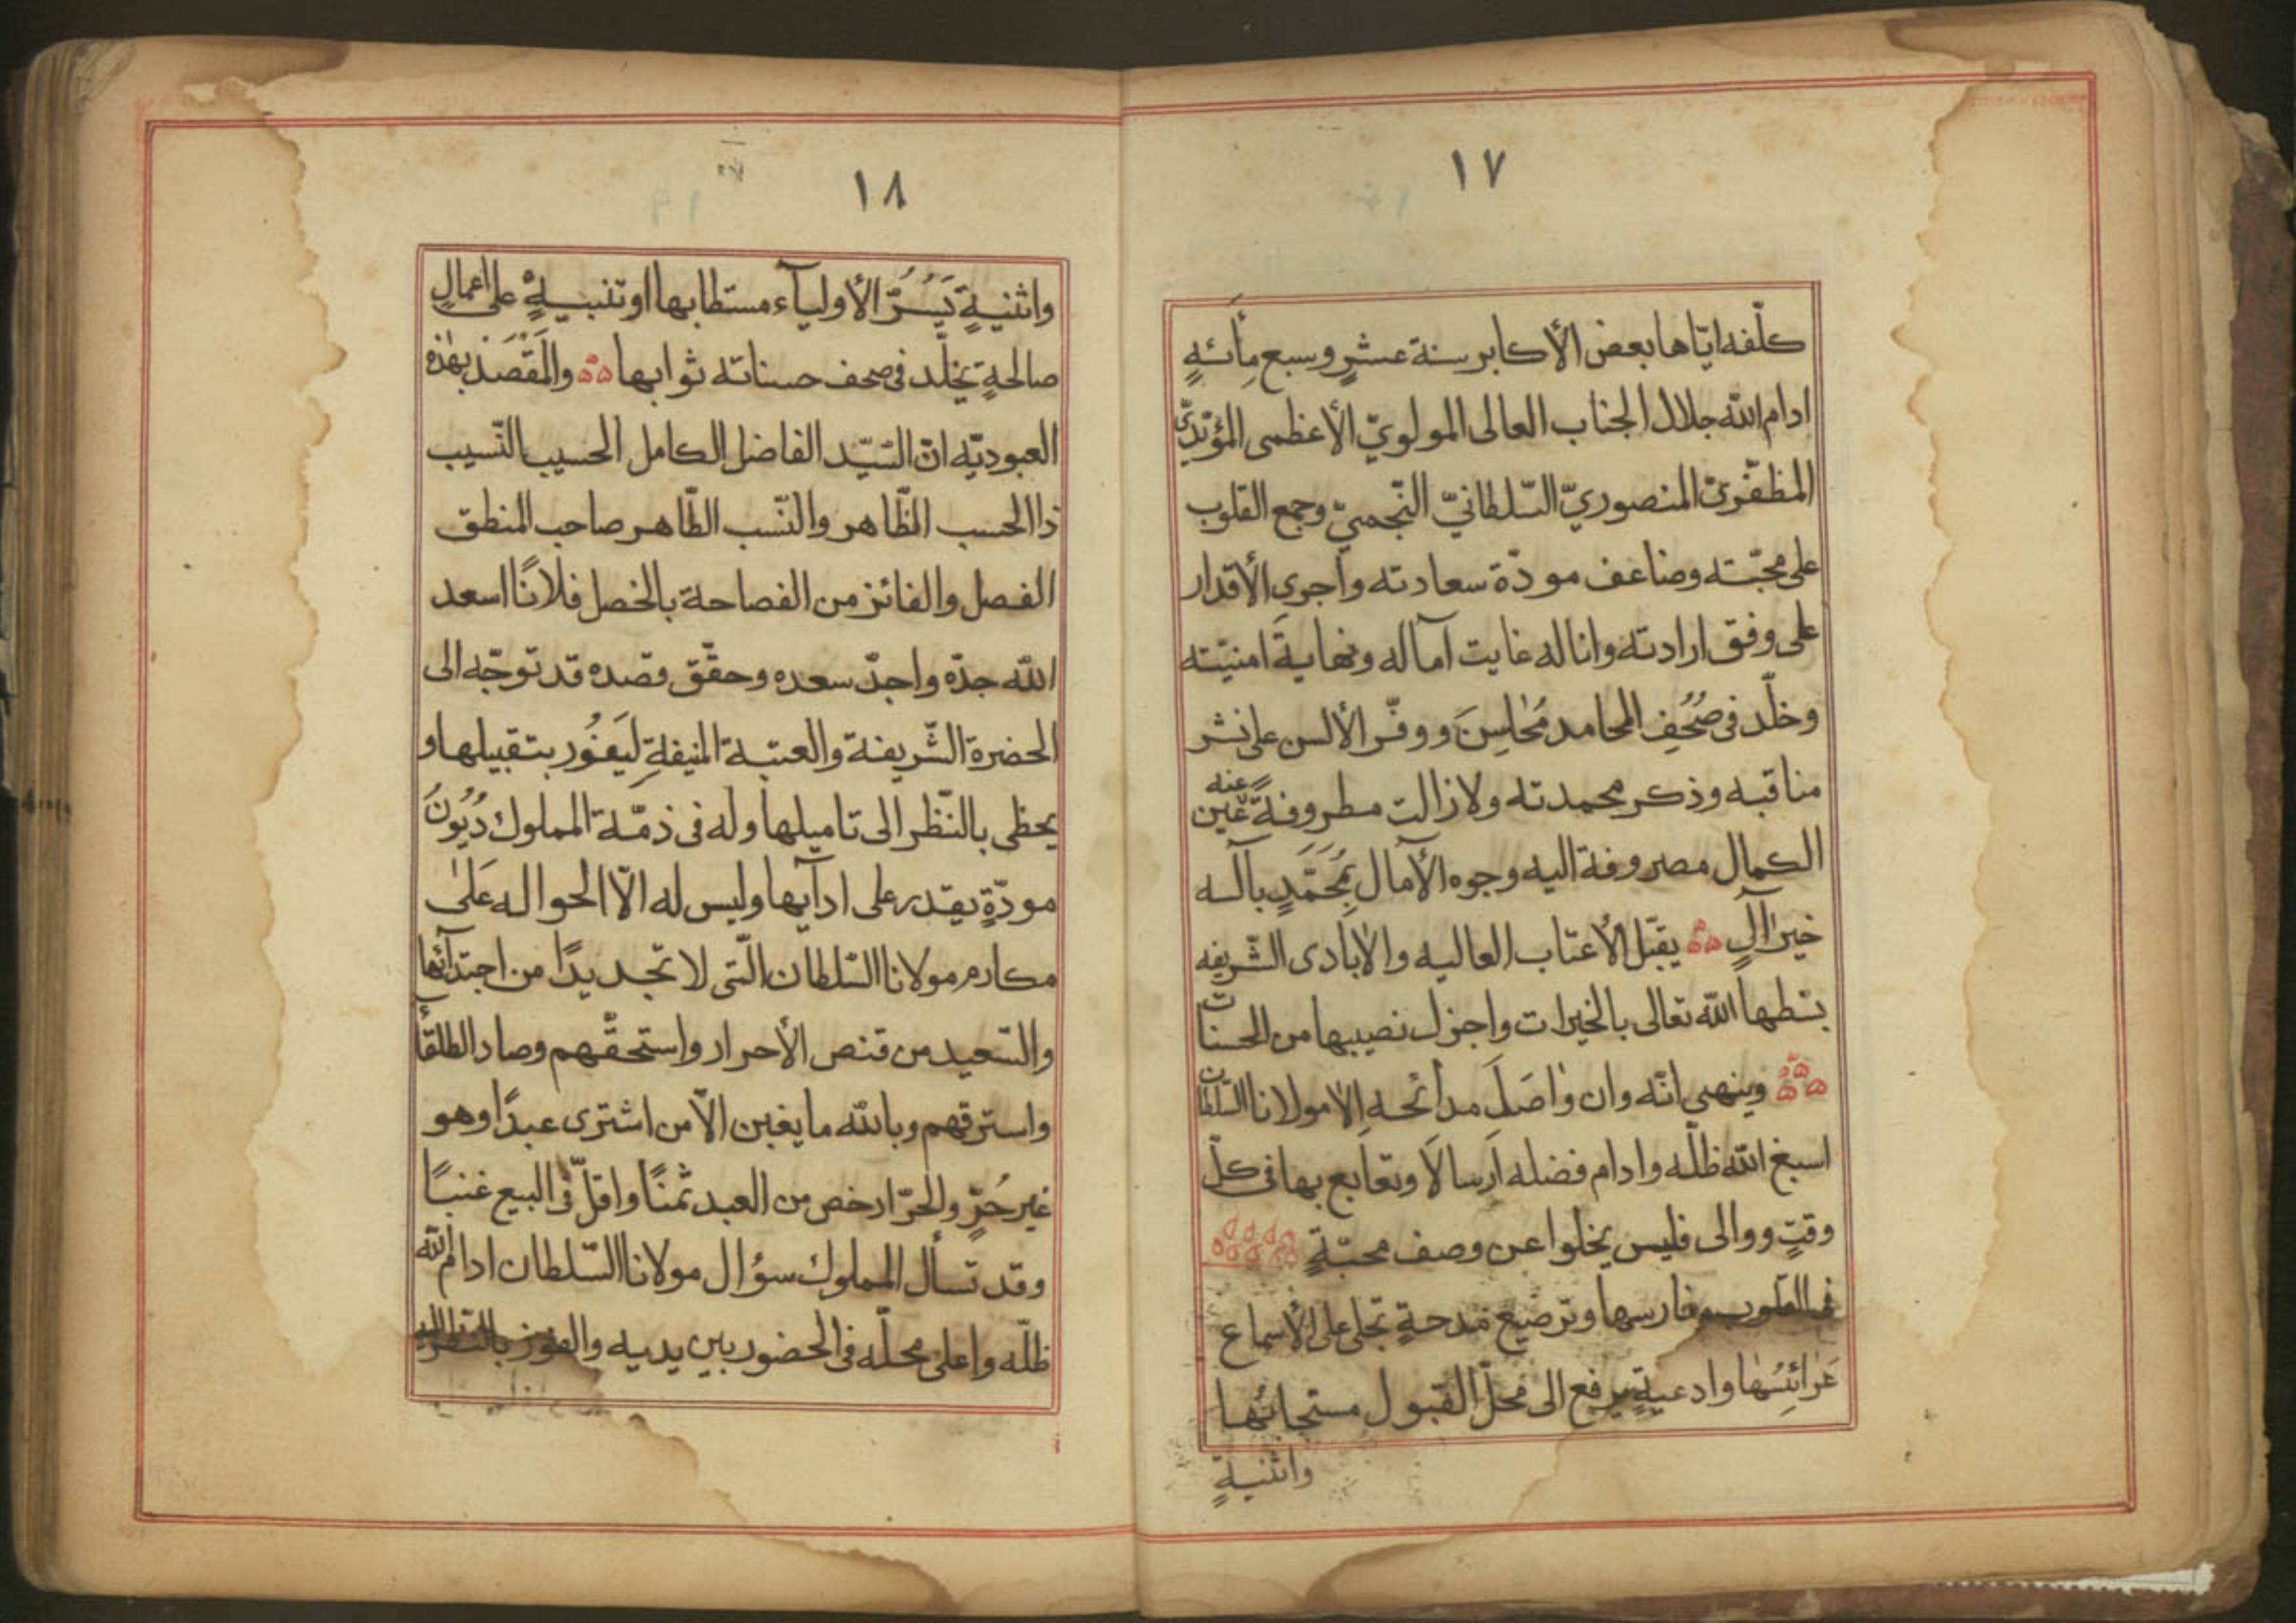 ١٧
كلّفه ايّاها بعض الأكابر سنة عشرٍ وسبع مِأئةٍ
ادام الله جلال الجناب العالى المولويّ الأعظمى المؤيّديّ
المظفّريّ المنصوريّ السّلطانيّ النّجميّ وجمع القلوب
على محبّته وضاعف مودّة سعادته واجرى الأقدار
على وفق ارادته واناله غايت آماله ونهايةَ امنيّته
وخلّد فى صُحُفِ المحامد مَحٰاسِنَ ووفّر الألسن على نشر
مناقبه وذكر محمدته ولازالت مطروفةً عنه عين
الكمال مصروفة اليه وجوه الآمال بِمُحَمَّدٍ بآلـه
خير آلٍ يقبّل الأعتاب العاليه والأيادى الشّريفه
بسّطها الله تعالى بالخيرات واجزل نصيبها من الحسنات
وينهى انّه وان وٰاصَلَ مدائحـه الا مولانا السّلطان
اسبغ الله ظلّه وادام فضله اَرسالاً وتعابع بها فى كلّ
وقتٍ ووالى فليس يخلوا عن وصف محبّةٍ
فى القلوب مغارسها وترصيع مَدحةٍ تجلى على الأسماع
عَرائِسُها وادعيةٍ يرفع الى محلّ القبول مستجابُها
واثنيةٍ
١٨
واثنيةٍ يَسُرُّ الأولياۤء مستطابها او تنبيهٍ على اعمالٍ
صالحةٍ يخلّد فى صحف حسناته ثوابها والمَقْصَد بهٰذه
العبوديّه انّ السّيّد الفاضل الكامل الحسيب النّسيب
ذا الحسب الظّاهر والنّسب الطّاهر صاحب المنطق
الفصل والفائز من الفصاحة بالخصل فلانًا اسعد
الله جدّه واجدّ سعده وحقّق قصده قد توجّه الى
الحضرة الشّريفة والعتبة المنيفةِ ليَفُوز بتقبيلها و
يحظى بالنّظر الى تاميلها وله فى ذمّة المملوك دُيُونُ
مودّةٍ يقدر على ادآيها وليس له الّا الحواله عَلىٰ
مكارم مولانا السّلطان الّتى لا تجد يدًا من اجتدآئها
والسّعيد من قنص الأحرار واستحقّهم وصاد الطلقأ
واسترقهم وبالله ما يغبن الّا من اشترى عبدًا وهو
غير حُرٍّ والحرّ ارخص من العبد ثمنًا واقلّ فى البيع غنبًا
وقد تسأل المملوك سؤال مولانا السّلطان ادام الله
ظلّه واعلى محلّه فى الحضور بين يديه والفوز بالنّظر اليه